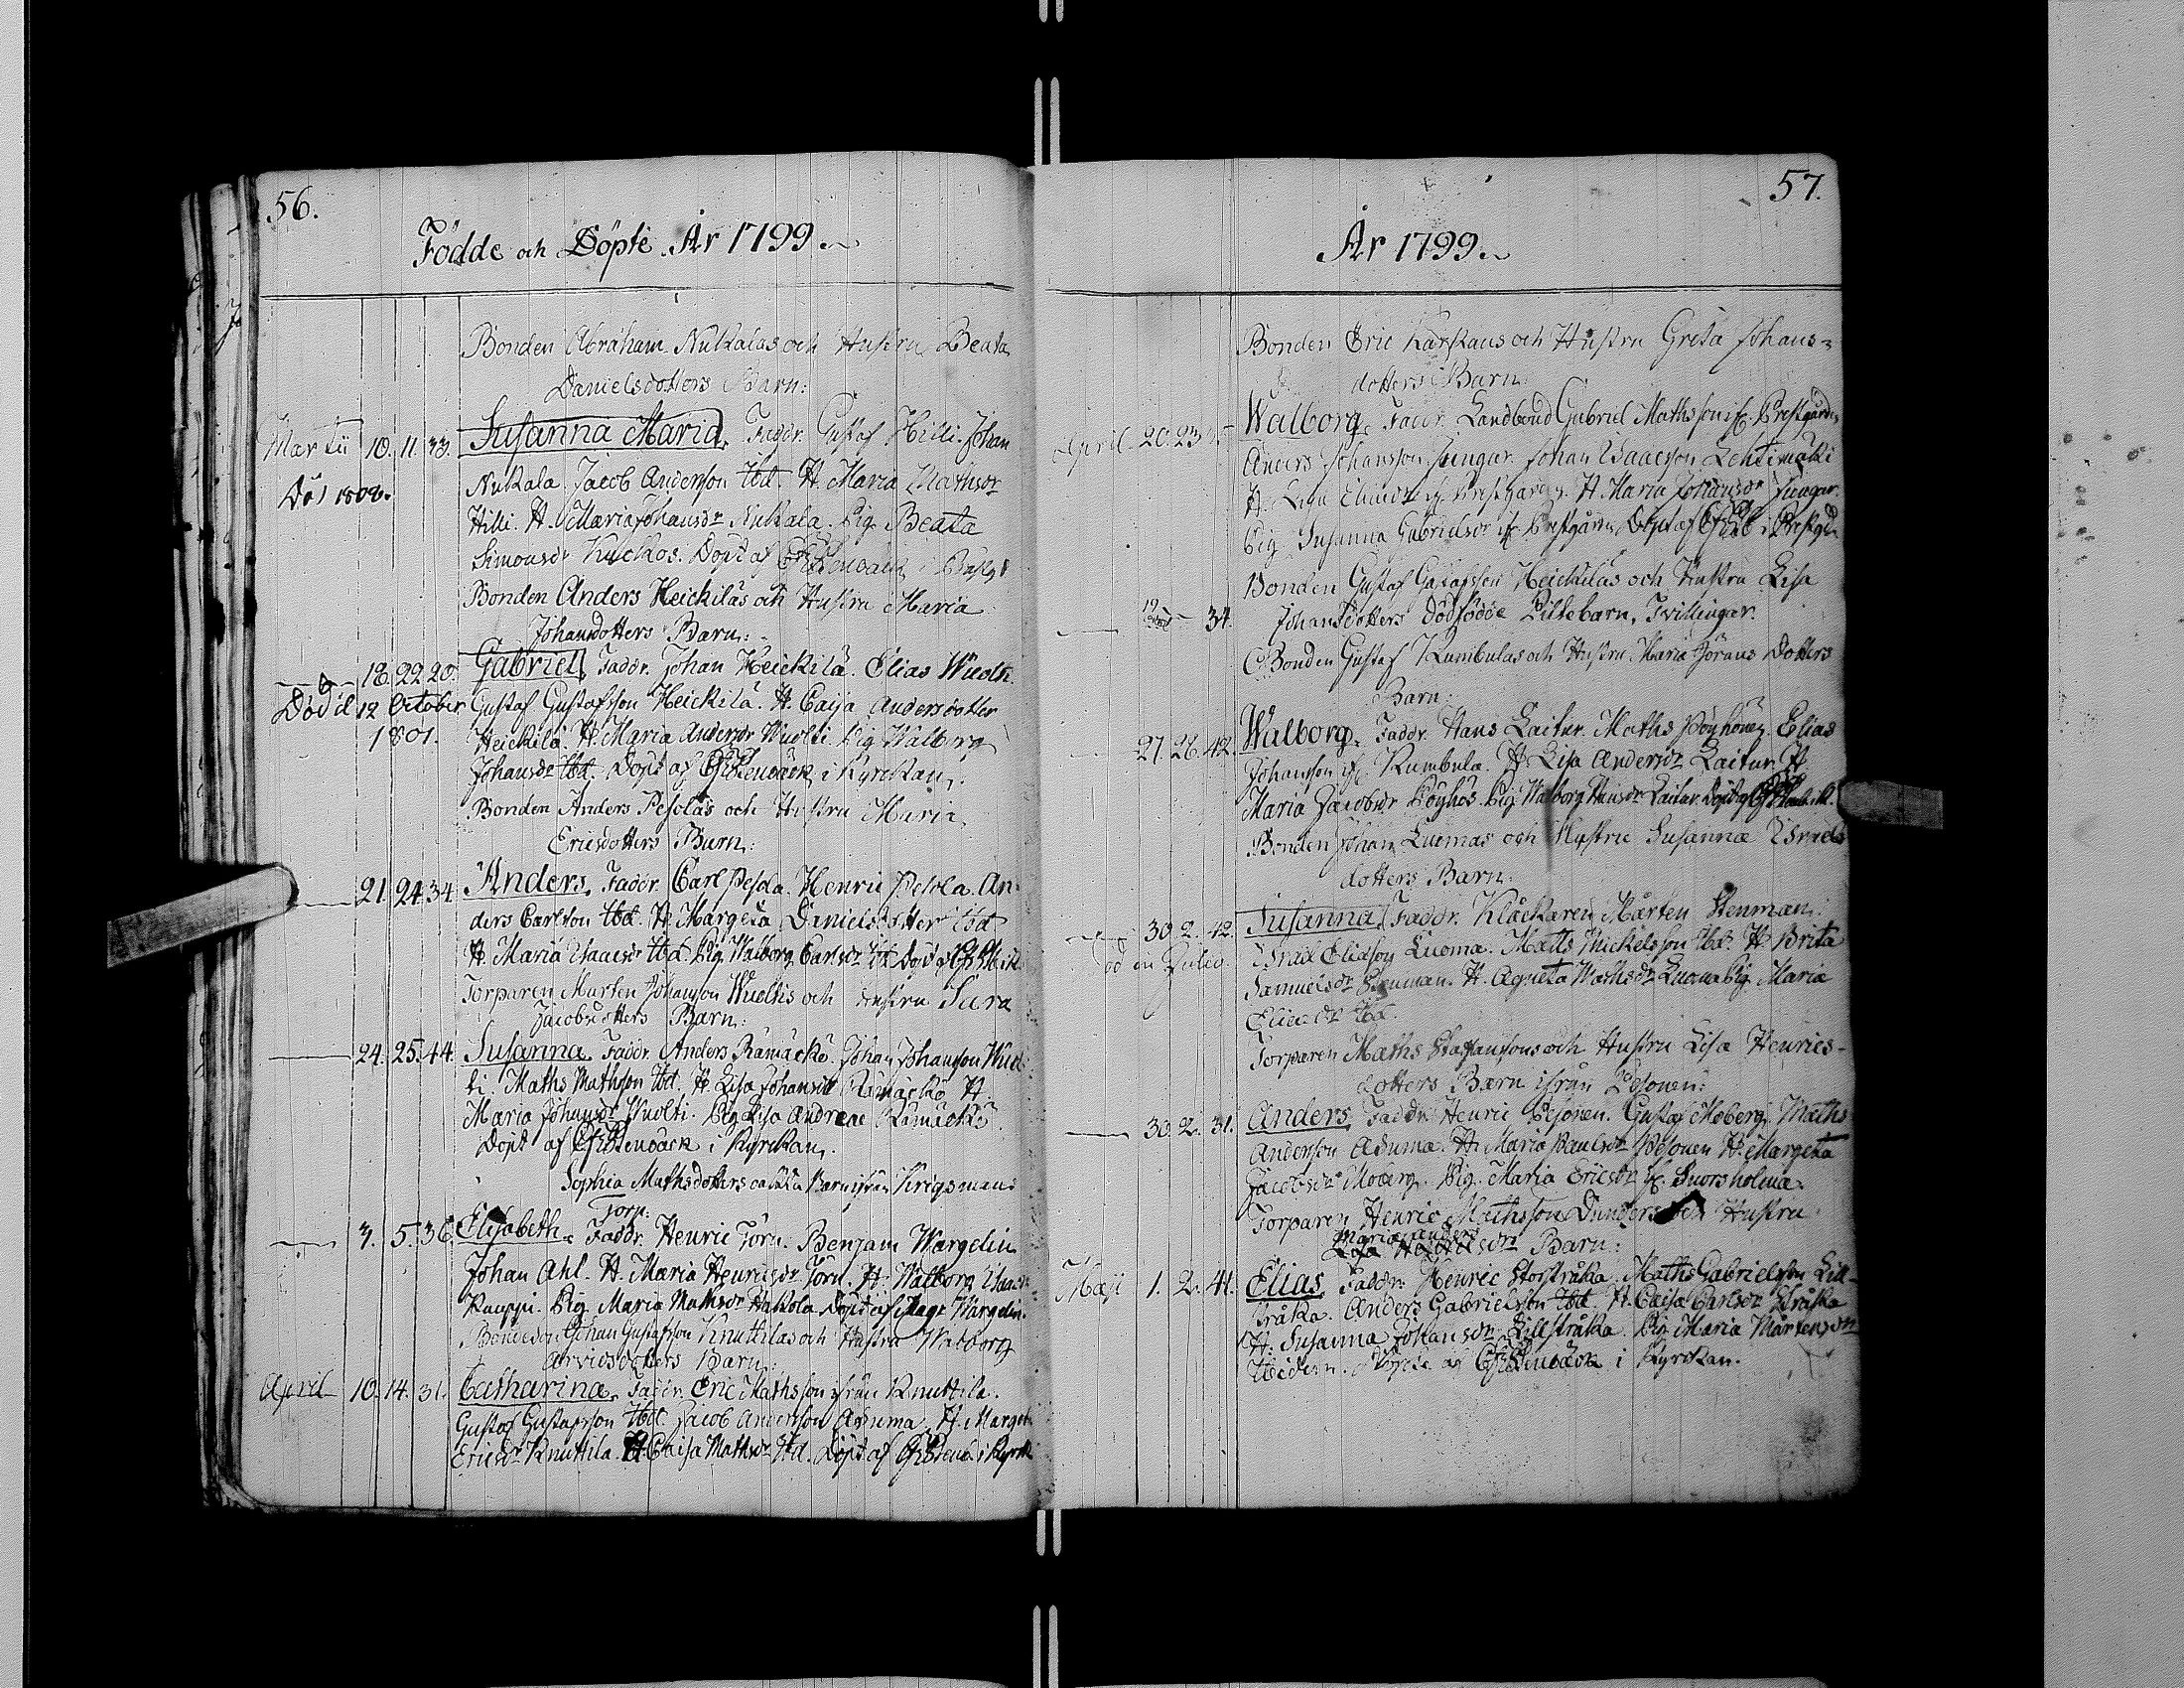 56.
Födde och Döpte År 1799.
Bonden Abraham Nukalas och Hustru Beata
Danielsdotters Barn:
Martii 10. 11. 33. Susanna Maria. Faddr. Gustaf Hilli. Johan
Nukala. Jacob Anderson Ibd. H. Maria Mathsdr
Död 1808.
Hilli. H. Maria Johansdr Nukala. Pig. Beata
Simonsdr Döpt af
Bonden Anders Heickiläs och Hustru Maria
Johansdotters Barn:
18. 22 20. Gabriel. Faddr. Johan Heickilä. Elias Wuolti.
Död d 12 October Gustaf Gustafsson Heickilä. H. Caisa Andersdotter
1801. Heickilä. H. Maria Andersdr Wuolti. Pig. Walborg
Johansdr Ibd. Döpt af i Kyrckan.
Bonden Anders Pesolas och Hustru Maria
Ericsdotters Barn:
21. 24. 34. Anders. Faddr. Carl Pesola. Henric Pesola. An-
ders Carlson Ibd. H. Margeta Danielsdotter Ibd
H. Maria Isaacsdr Ibd. Pig. Walborg Carlsdr Ibd. Döpt af
Torparen Mårten Johanson Wuoltis och Hustru Sara
Jacobsdotters Barn:
24. 25. 44. Susanna. Faddr. Anders Rämäckö. Johan Johanson Wuol-
ti. Maths Mathson Ibd. H. Lisa Johansdr Rämäckö H.
Maria Johansdr Wuolti. Pig. Lisa Andreae Rämäckö.
Döpt af i Kyrckan.
Sophia Mathsdotters oäckta Barn ifrån Krigsmans
Torp:
3. 5. 36. Elisabeth. Faddr. Henric Törn. Benjam Wargelin
Johan Ahl. H. Maria Henricsdr Törn. H. Walborg Isaacsdr
Kauppi. Pig. Maria Mathsdr Hakola. Döpt af Wargelin.
Bondeson Johan Gustafsson Knuttilas och Hustru Walborg
Arvidsdotters Barn:
April 10. 14. 31. Catharina. Faddr. Eric Mathsson ifrån Knuttila.
Gustaf Gustafsson Ibd. Jacob Anderson Asuma. H. Marget
Ericsdr Knuttila. H. Caisa Mathsdr Ibd. Döpt af i Kyrck
57.
År 1799.
Bonden Eric Karskaus och Hustru Greta Johans-
dotters Barn:
April. 20. 23 Walborg. Faddr. Landbond Gabriel Mathsson if. Prestgården
Anders Johansson Hungar. Johan Isaacson Lehtimäki
H. Prestgården. H. Maria Johansdr Hungar.
Pig. Susanna Gabrielsdr if. Prestgården Döpt af i Prestgd
Bonden Gustaf Gustafsson Heickiläs och Hustru Lisa
19 34. Johansdotters dödfödde Pillebarn, Tvillingar.
Bonden Gustaf Kumbulas och Hustru Maria Jörans Dotters
Barn:
27. 28. 42. Walborg. Faddr. Hans Laitur. Maths Pöyhönen. Elias
Johanson if. Kumbula. H. Lisa Andersdr Laitur. H.
Maria Jacobsdr Pöyhös. Pig. Walborg Hansdr Laitur. Döpt af
Bonden Johan Luomas och Hustru Susanna Israels
dotters Barn:
30. 2. 42. Susanna. Faddr. Klåckaren Mårten Stenman.
Israel Eliasson Luoma. Matts Mickelsson Ibd. H. Brita
Samuelsdr Stenman. H. Agneta Mathsdr Luoma Pig. Maria
Eliasdr Ibd.
Torparen Maths Staffansons och Hustru Lisa Henrics-
dotters Barn ifrån Pesonen:
30. 2. 31. Anders. Faddr. Henric Pesonen. Gustaf Moberg. Maths
Anderson Asuma. H. Maria Paulsdr Pesonen H. Margeta
Jacobsdr Moberg. Pig. Maria Ericsdr if.
Torparen Henric Mathsson Dunders och Hustru
Maria Anders
sdrs Barn:
Maji 1. 2. 41. Elias. Faddr. Henric Storstråka. Maths Gabrielson Lill-
stråka. Anders Gabrielsson Ibd. H. Caisa Carlsdr Stråka
H. Susanna Johansdr Lillstråka. Pig. Maria Mårtensdr
Döpte af i Kyrckan.